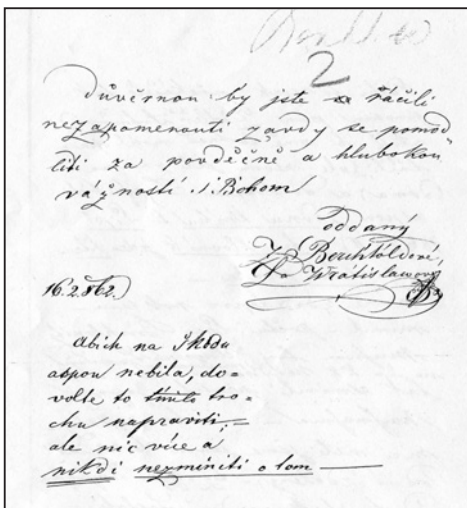 2
Důvěrnou by jste se ráčili
nezapomenouti zavdy se pomod
liti za povděčně a hlubokou
vážností. S Bohem
oddaný
Berchtoldové,
Wratislawové
16.2.862.
Abich na Škodu
aspon nebila, do=
volte to tímto tro=
chu napraviti;=
ale nic více a
nikdi nezmíniti o tom